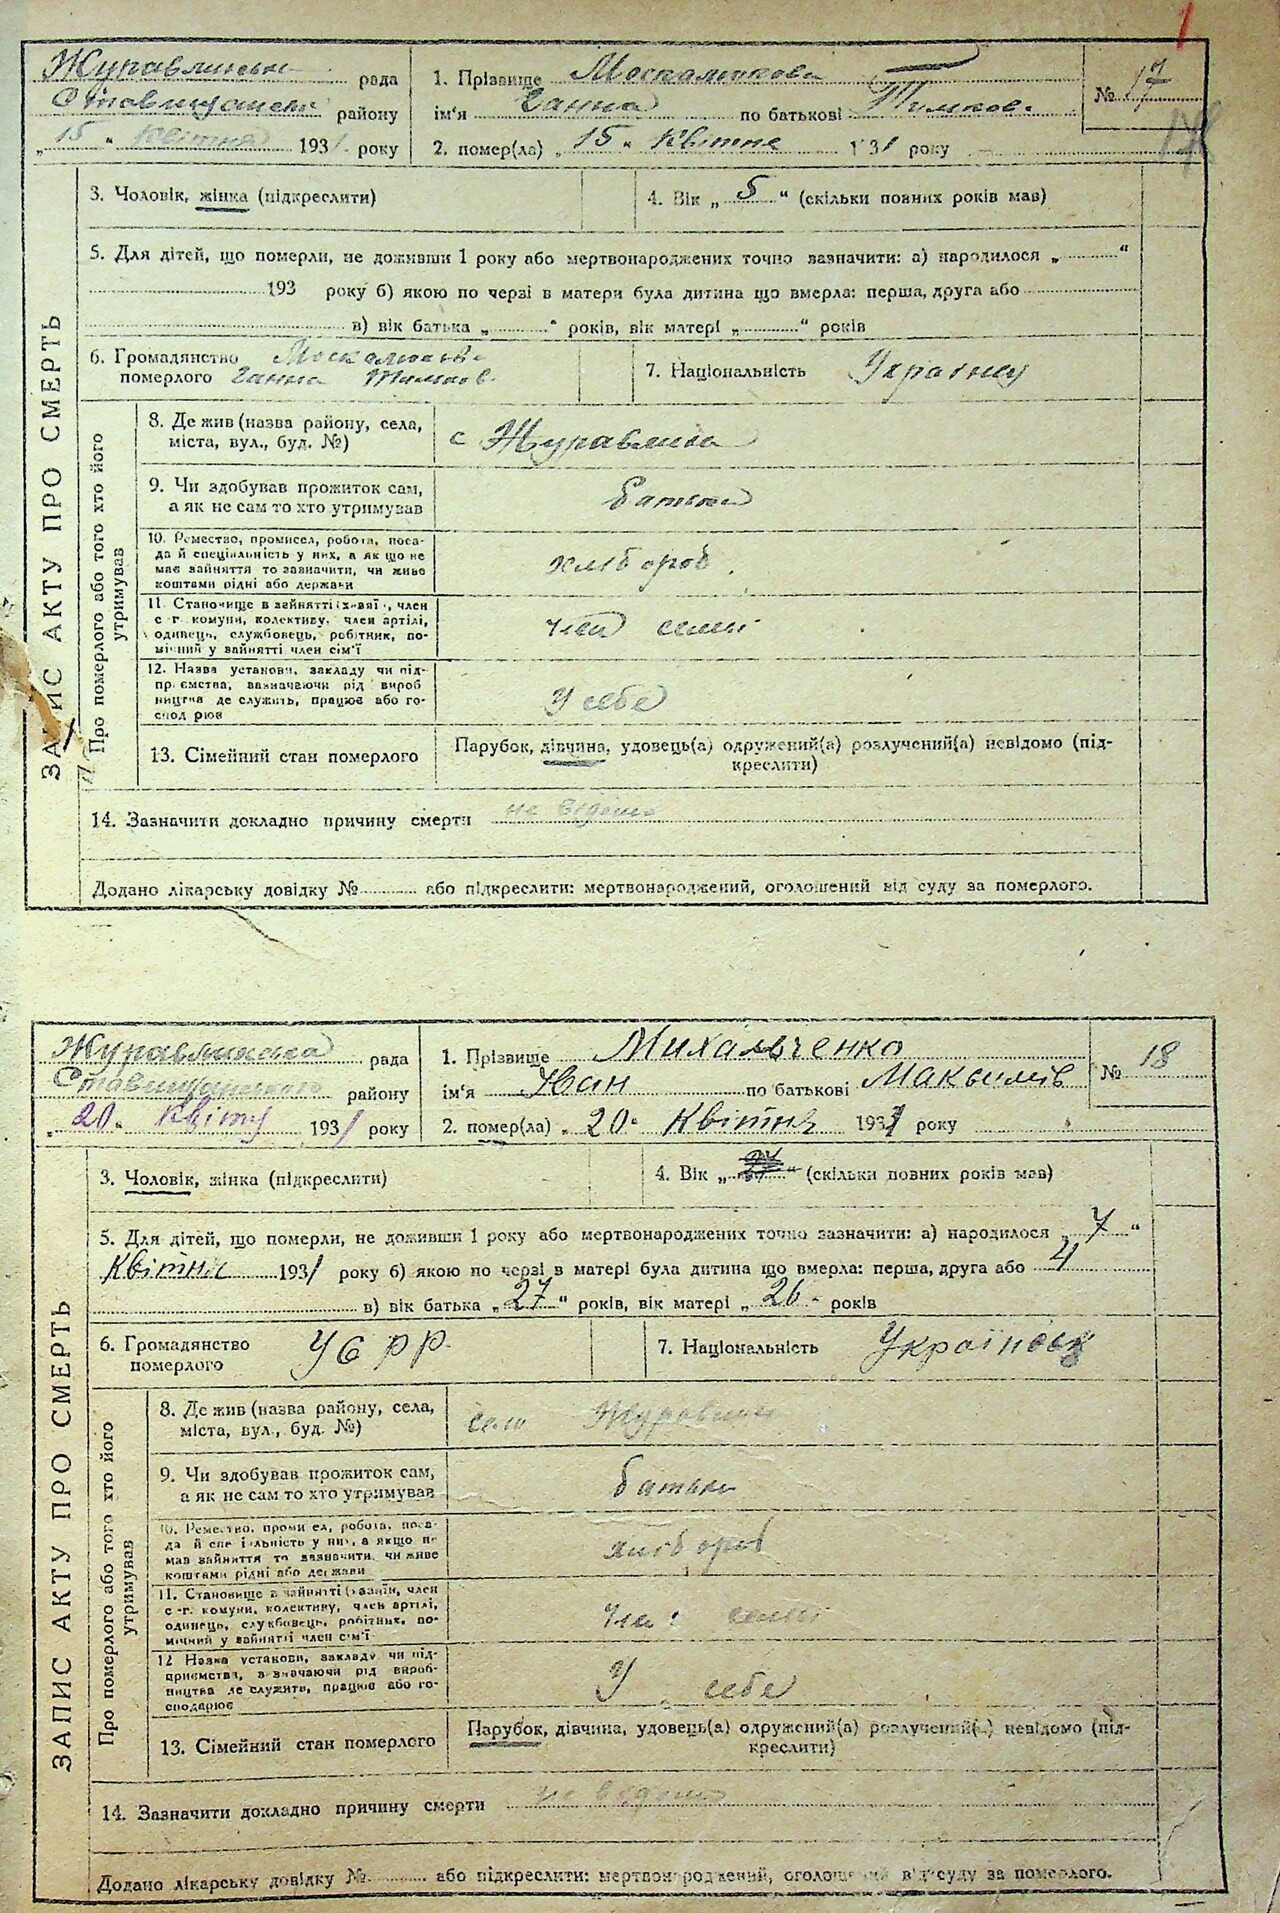 1
Журавлинськ рада
Ставищанськ району
„15" Квітня 1931 року
1. Прізвище Москаленкова
ім'я Ганна по батькові Тимков.
2. помер(ла) „15" Квітня 1931 року
№ 17
3. Чоловік, жінка (підкреслити)
4. Вік „5" (скільки повних років мав)
5. Для дітей, що померли, не доживши 1 року або мертвонароджених точно зазначити: а) народилося „ "
193 року б) якою по черзі в матери була дитина що вмерла: перша, друга або
в) вік батька „ " років, вік матері „ " років
6. Громадянство
померлого Ганна Тимков.
7. Національність
ЗАПИС АКТУ ПРО СМЕРТЬ
Про померлого або того хто його утримував
8. Де жив (назва району, села,
міста, вул., буд. №)
с Журавлиха
9. Чи здобував прожиток сам,
а як не сам то хто утримував
батьки
10. Ремество, промисел, робота, поса-
да й спеціяльність у них, а якщо не
має зайняття то зазначити, чи живе
коштами рідні або держави
хлібороб.
11. Становище в зайнятті (хазяїн, член
с-г. комуни, колективу, член артілі,
одинець, службовець, робітник, по-
мічний у зайнятті член сім'ї
член семьі
12. Назва установи, закладу чи під-
приємства, зазначаючи рід вироб
ництва де служить, працює або го-
сподарює
У себе
13. Сімейний стан померлого
Парубок, дівчина, удовець(а) одружений(а) розлучений(а) невідомо (під-
креслити)
14. Зазначити докладно причину смерти не відомо
Додано лікарську довідку № або підкреслити: мертвонароджений, оголошений від суду за померлого.
Журавлиська рада
Ставищанського району
„20" Квітня 1931 року
1. Прізвище Михальченко
ім'я Іван по батькові Максимів
2. помер(ла) „20" Квітня 1931 року
№ 18
3. Чоловік, жінка (підкреслити)
4. Вік „ " (скільки повних років мав)
5. Для дітей, що померли, не доживши 1 року або мертвонароджених точно зазначити: а) народилося „7"
Квітня 1931 року б) якою по черзі в матері була дитина що вмерла: перша, друга або 4
в) вік батька „27" років, вік матері „26" років
6. Громадянство
померлого
УСРР.
7. Національність
ЗАПИС АКТУ ПРО СМЕРТЬ
Про померлого або того хто його утримував
8. Де жив (назва району, села,
міста, вул., буд. №)
село
9. Чи здобував прожиток сам,
а як не сам то хто утримував
батьки
10. Ремество, промисел, робота, поса-
да й спеціяльність у них, а якщо не
мав зайняття то зазначити, чи живе
коштами рідні або держави
хлібороб
11. Становище в зайнятті (хазяїн, член
с-г. комуни, колективу, член артілі,
одинець, службовець, робітник, по-
мічний у зайнятті член сім'ї
член семьі
12 Назва установи, закладу чи під-
приємства, зазначаючи рід вироб-
ництва де служить, працює або го-
сподарює
У себе
13. Сімейний стан померлого
Парубок, дівчина, удовець(а) одружений(а) розлучений(а) невідомо (під-
креслити)
14. Зазначити докладно причину смерти не відомо
Додано лікарську довідку № або підкреслити: мертвонароджений, оголошений від суду за померлого.